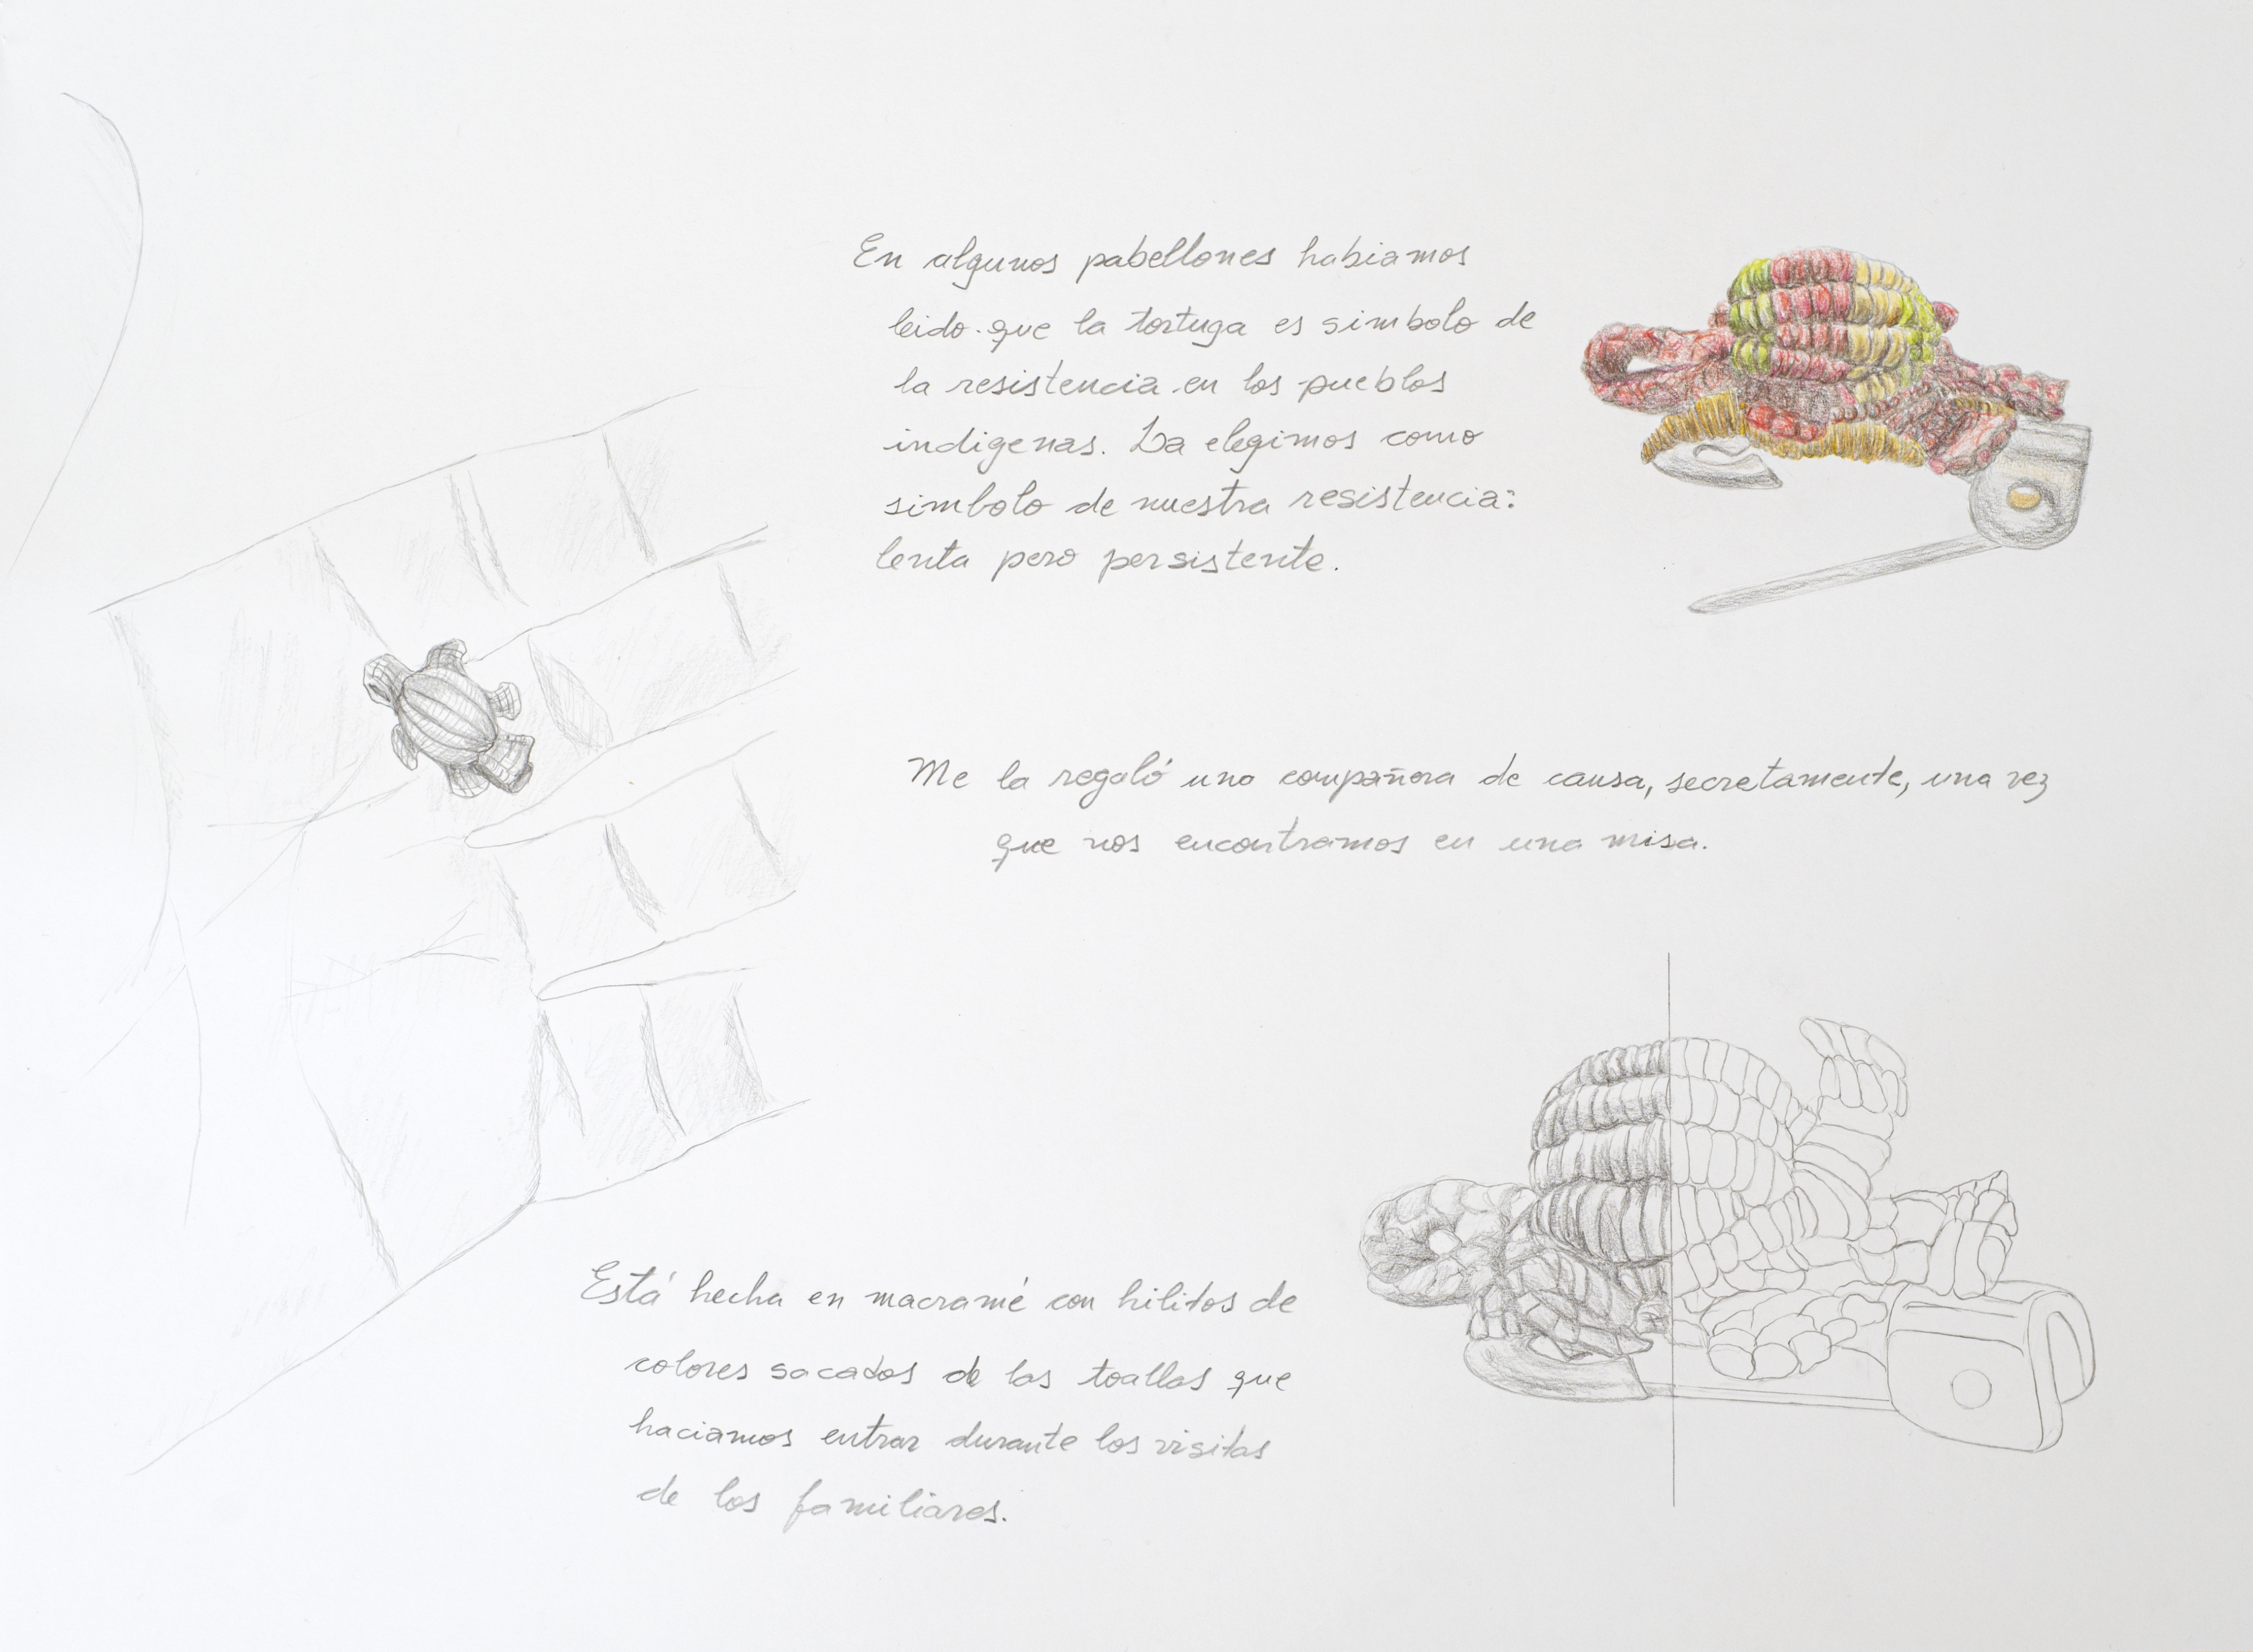 En algunos pabellones habiamos
leido que la tortuga es simbolo de
la resistencia en los pueblos
indigenas. La elegimos como
simbolo de nuestra resistencia:
lenta pero persistente.
Me la regaló una compañera de causa, secretamente, una vez
que nos encontramos en una misa.
Está hecha en macramé con hilitos de
colores sacados de las toallas que
haciamos entrar durante las visitas
de los familiares.